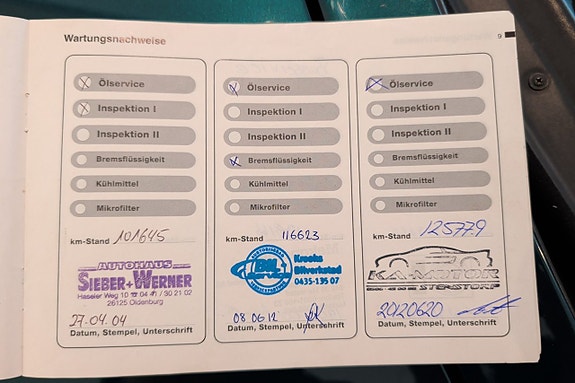 Wartungsnachweise
9
Ölservice
Inspektion I
Inspektion II
Bremsflüssigkeit
Kühlmittel
Mikrofilter
km-Stand 101645
AUTOHAUS
SIEBER+WERNER
Haseler Weg 10 ☎ 04 41 / 30 21 02
26125 Oldenburg
27.04.04
Datum, Stempel, Unterschrift
Ölservice
Inspektion I
Inspektion II
Bremsflüssigkeit
Kühlmittel
Mikrofilter
km-Stand 116623
Krooks
Bilverkstad
0435-195 07
08 06 12
Datum, Stempel, Unterschrift
Ölservice
Inspektion I
Inspektion II
Bremsflüssigkeit
Kühlmittel
Mikrofilter
km-Stand 125779
KA-MOTOR
STENSTORP
20120620
Datum, Stempel, Unterschrift